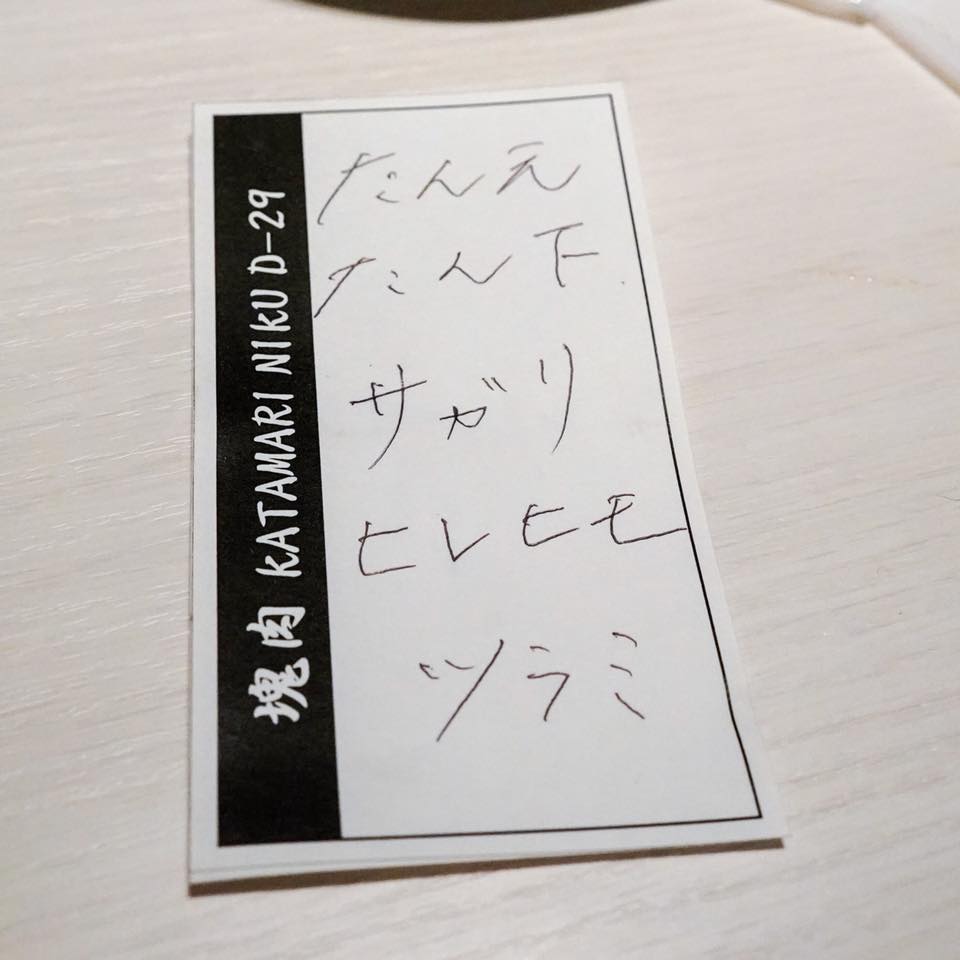 塊肉 KATAMARI NIKU D-29
たん元
たん下
サガリ
ヒレヒモ
ツラミ